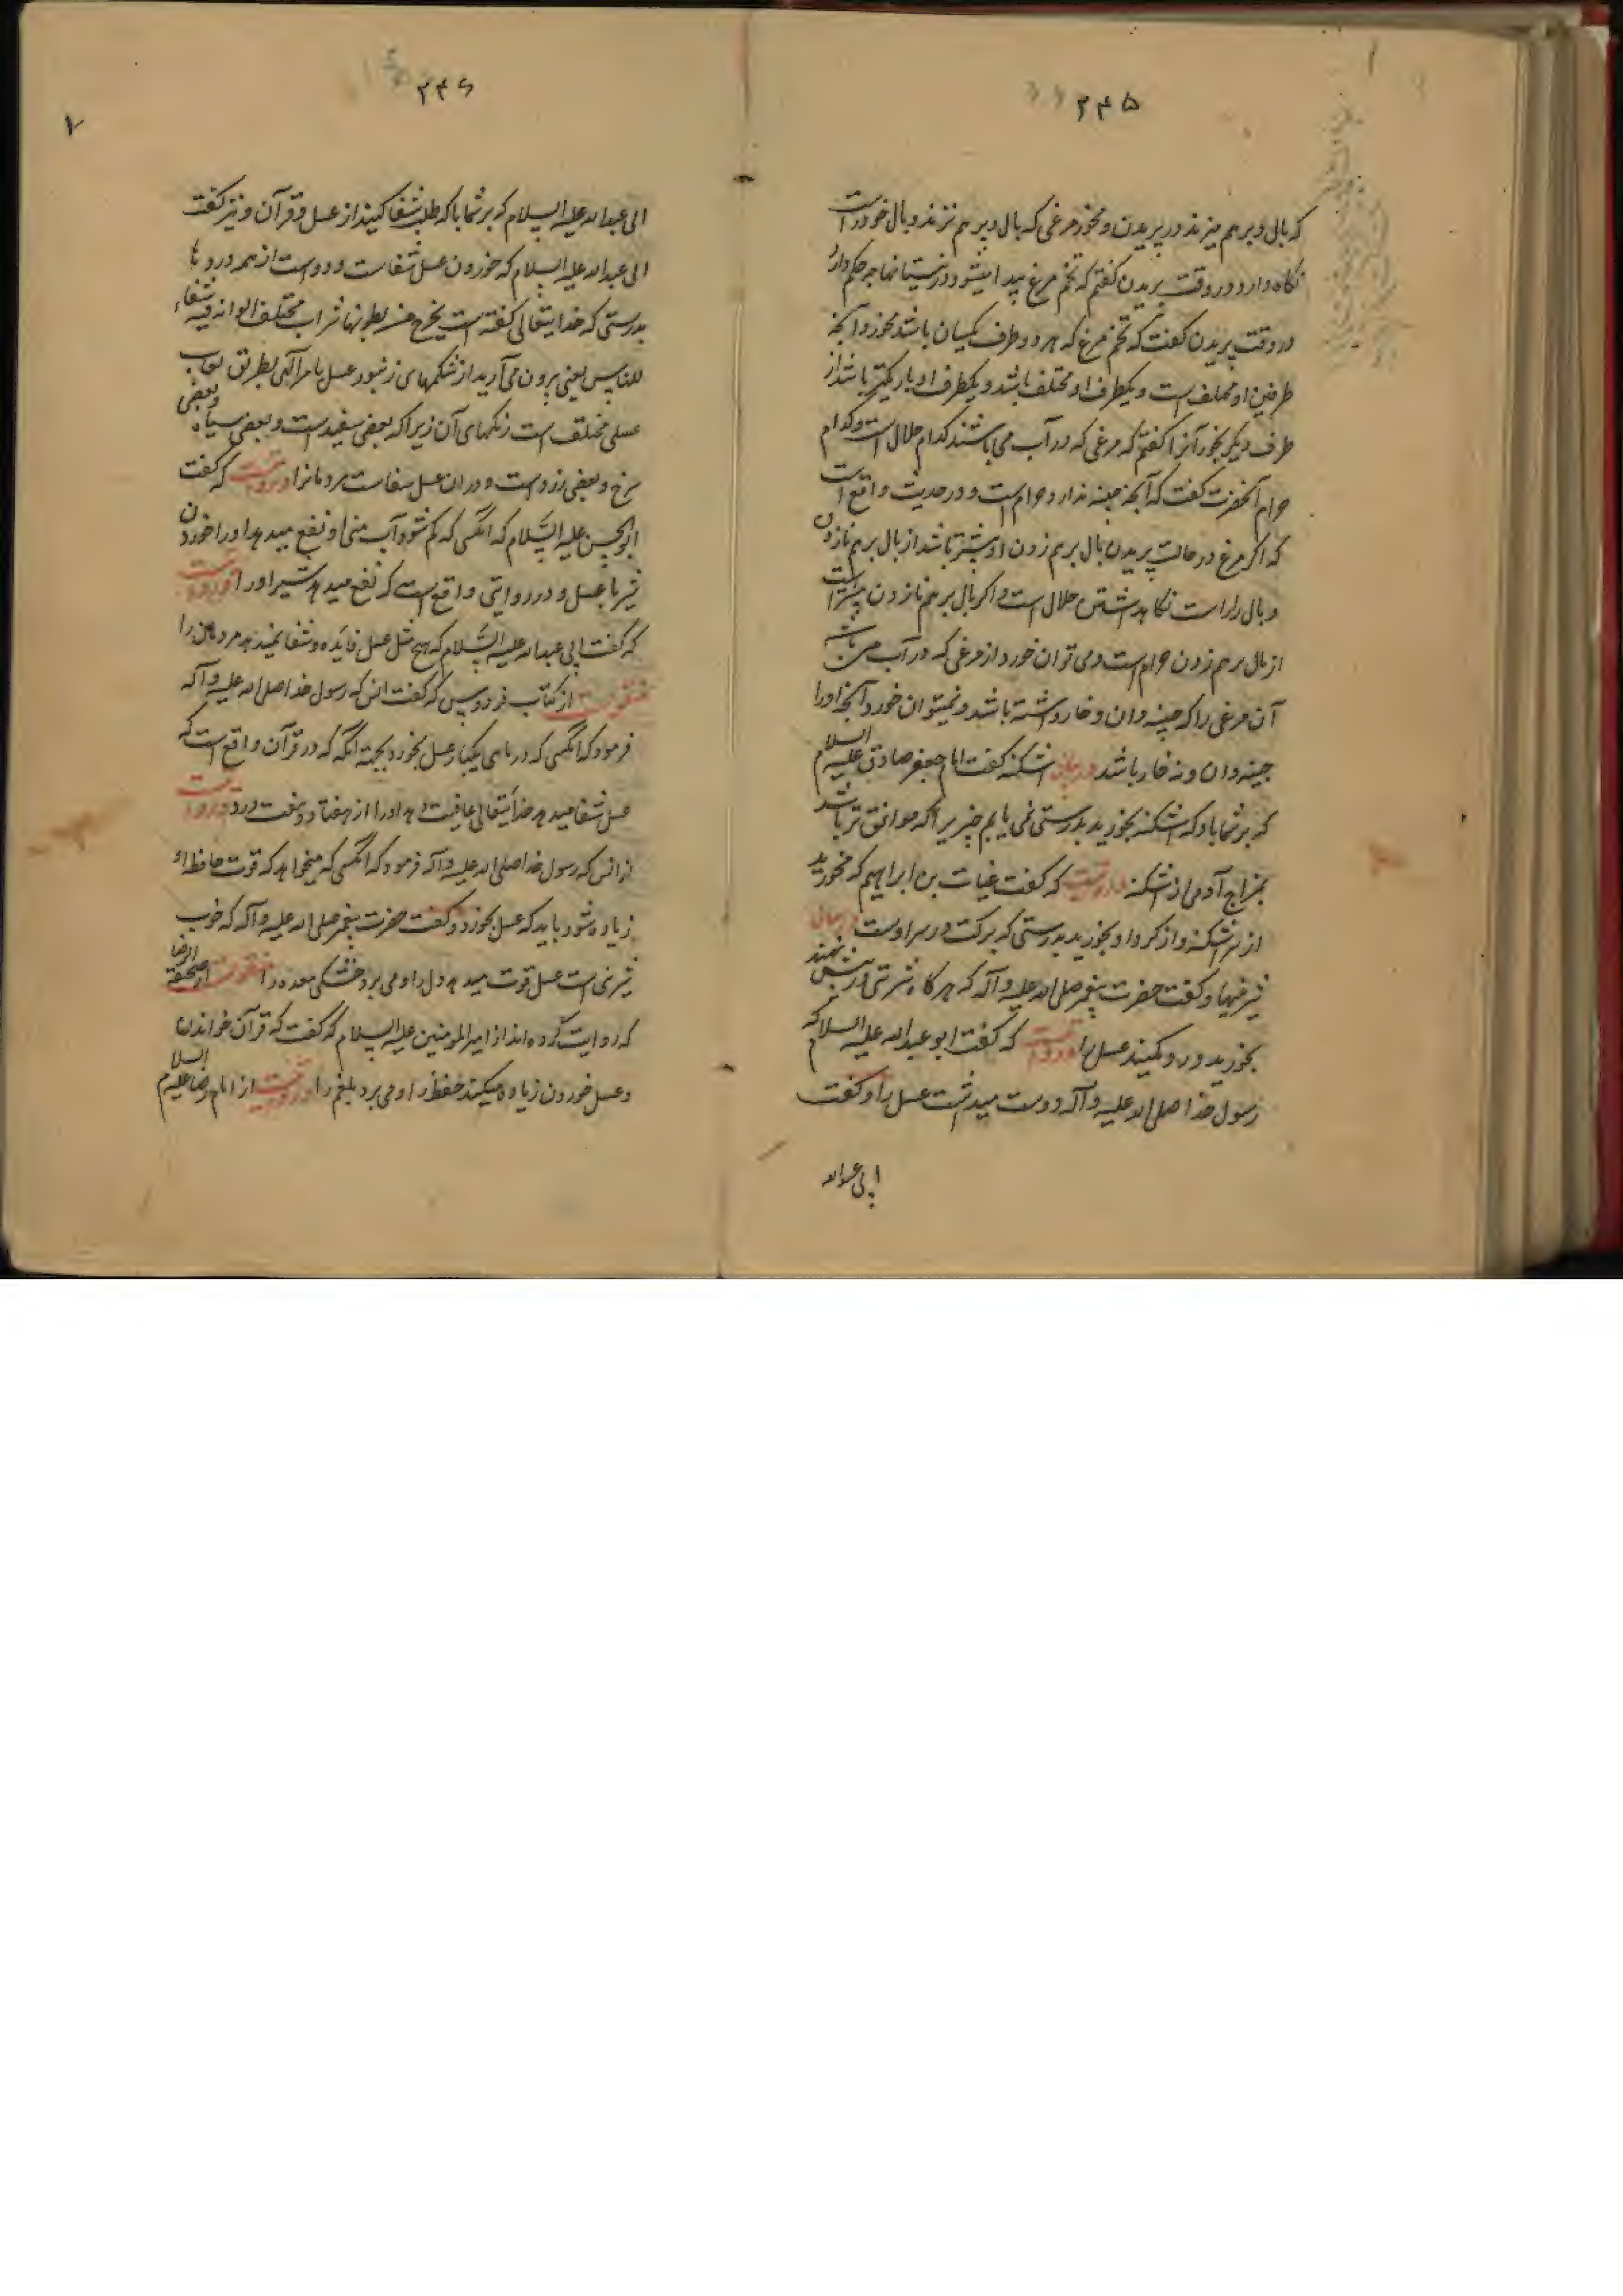 ۲۴۵
که بال و بر هم میزند در پریدن و مخور مرغی که بال و بر هم نزند و بال خود راست
نکاه دارد در وقت پریدن کفتم که تخم مرغ پیدا میشود در نیستانها چه حکم دارد
در وقت پریدن کفت که تخم مرغ که هر دو طرف یکسان باشد مخور و آنچه
طرفین او مختلف است و یکطرف او مختلف باشد و یکطرف او باریکتر باشد از
طرف دیکر بخور آنرا کفتم که مرغی که در آب می باشند کدام حلال است و کدام
حرام آنحضرت کفت که آنچه چینه ندارد حرام است و در حدیث واقع است
که اکر مرغ در حالت پریدن بال بر هم زدن او بیشتر باشد از بال بر هم نازدن
و بال را راست نکاه داشتن حلال است و اکر بال بر هم نازدن بیشتر است
از بال بر هم زدن حرام است و می توان خورد از مرغی که در آب می باشد
آن مرغی را که چینه دان و خار داشته باشد و نمیتوان خورد آنچه او را
چینه دان و نه خار باشد در بیان اشکنه کفت امام جعفر صادق علیه السلام
که بر شما باد که اشکنه بخورید بدرستی نمی یابم چیزی را که موافق تر باشد
بمزاج آدمی از اشکنه و روایتست که کفت غیاث بن ابراهیم که مخورید
از سر اشکنه و از کرد او بخورید بدرستی که برکت در سر اوست در بیان
شیرینیها و کفت حضرت پیغمبر صلی الله علیه و آله که هر کاه شربتی در پیش نهند
بخورید و رد مکنید عسل را و روایتست که کفت ابو عبد الله علیه السلام که
رسول خدا صلی الله علیه و آله دوست میداشت عسل را و کفت
ابی عبد الله
۲۴۶
ابی عبد الله علیه السلام که بر شما باد که طلب شفا کنید از عسل و قرآن و نیز کفت
ابی عبد الله علیه السلام که خوردن عسل شفاست و دواست از همه دردها
بدرستی که خدایتعالی کفته است یخرج من بطونها شراب مختلف الوانه فیه شفاء
للناس یعنی برون می آرید از شکمهای زنبور عسل بامر آلهی بطریق لعاب
عسلی مختلف است رنکهای آن زیرا که بعضی سفید است و بعضی سیاه و بعضی
سرخ و بعضی زرد است و در ان عسل شفاست مردمانرا و روایتست که کفت
ابو الحسن علیه السلام که انکسی که کم شود آب منی او نفع میدهد او را خوردن
شیر با عسل و در روایتی واقع است که نفع میدهد شیر او را و روایتست
که کفت ابی عبد الله علیه السلام که هیچ مثل عسل فایده و شفا نمیدهد مردمان را
منقولست از کتاب فردوس که کفت انس که رسول خدا صلی الله علیه و آله
فرمود که انکسی که در ماهی یکبار عسل بخورد بجهته انکه که در قرآن واقع است که
عسل شفا میدهد خدایتعالی عافیت دهد او را از هفتاد و هفت درد و روایتست
از انس که رسول خدا صلی الله علیه و آله فرمود که انکسی که میخواهد که قوت حافظه او
زیاده شود باید که عسل بخورد و کفت حضرت پیغمبر صلی الله علیه و آله که خوب
شیرینی است عسل قوت میدهد دل را و می برد خشکی معده را منقولست از صحیفة الرضا
که روایت کرده اند از امیر المومنین علیه السلام که کفت که قرآن خواندن
و عسل خوردن زیاده میکند حفظ را و می برد بلغم را و روایتست از امام رضا علیه السلام